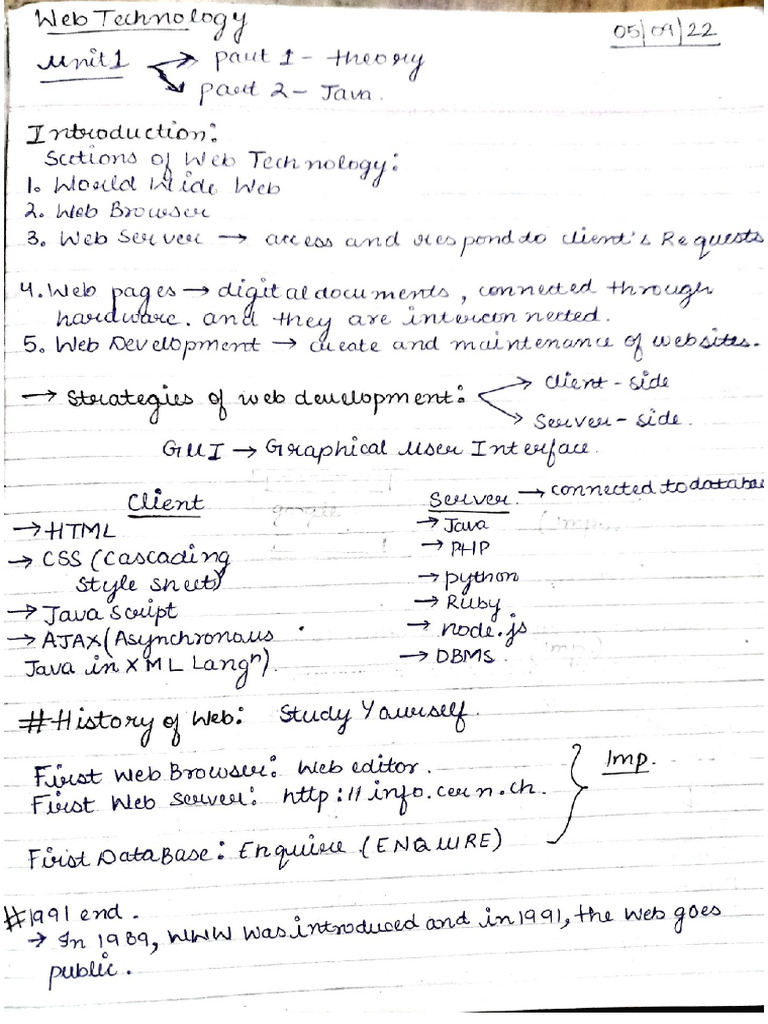 Web Technology
05/09/22
Unit 1 → part 1 - theory
→ part 2 - Java.
Introduction:
Sections of Web Technology:
1. World Wide Web
2. Web Browser
3. Web Server → access and respond to client's Requests
4. Web pages → digital documents, connected through
hardware. and they are interconnected.
5. Web Development → create and maintenance of websites.
→ Strategies of web development: → client-side
→ Server-side.
GUI → Graphical User Interface.
Client
→ HTML
→ CSS (Cascading
Style sheet)
→ Java Script
→ AJAX (Asynchronous
Java in XML Langn).
Server → connected to databa
→ Java
→ PHP
→ python
→ Ruby
→ node.js
→ DBMS.
# History of Web: Study Yourself.
First Web Browser: Web editor.
First Web Server: http://info.cern.ch.
Imp.
First DataBase: Enquire (ENQUIRE)
# 1991 end.
→ In 1989, WWW was introduced and in 1991, the web goes
public.